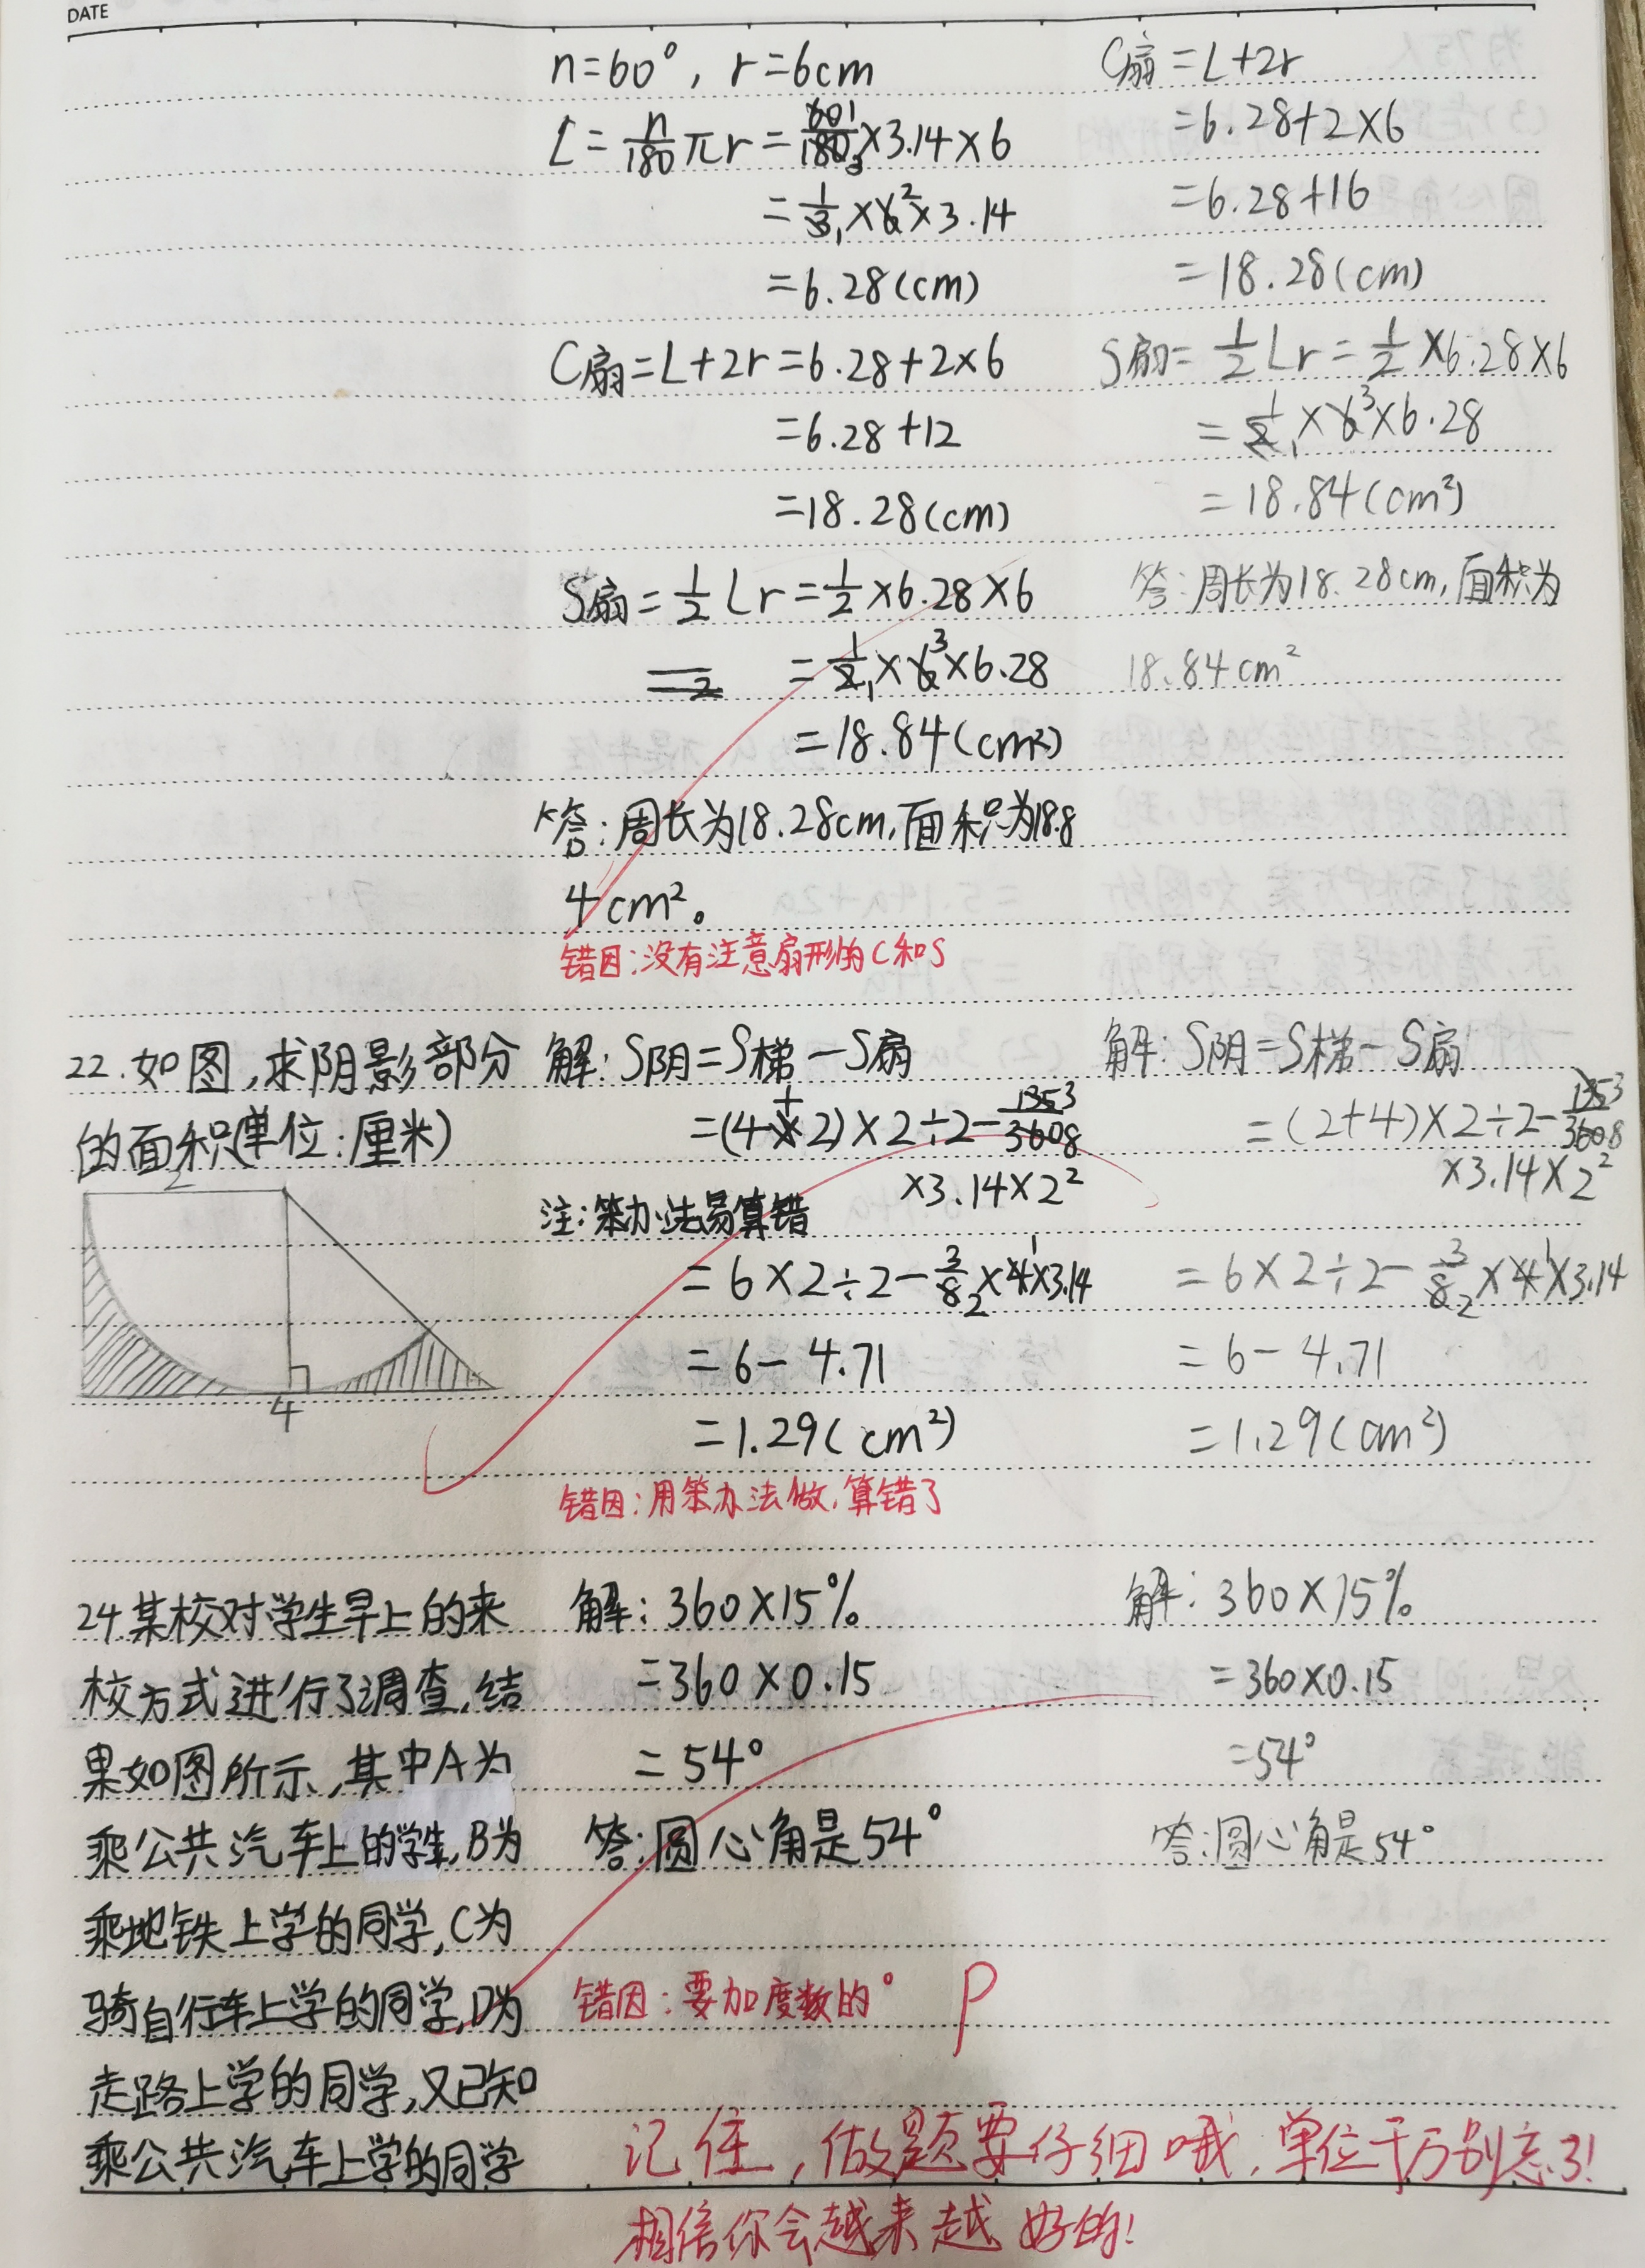 DATE
n=60°, r=6cm
L=n/180 πr=60 1/180 3×3.14×6
=1/3 1×6 2×3.14
=6.28(cm)
C扇=L+2r=6.28+2×6
=6.28+12
=18.28(cm)
S扇=1/2 Lr=1/2×6.28×6
=1/2 1×6 3×6.28
=18.84(cm²)
答:周长为18.28cm,面积为18.8
4cm²。
错因:没有注意扇形的C和S
C扇=L+2r
=6.28+2×6
=6.28+16
=18.28(cm)
S扇=1/2 Lr=1/2×6.28×6
=1/2 1×6 3×6.28
=18.84(cm²)
答:周长为18.28cm,面积为
18.84cm²
22.如图,求阴影部分
的面积(单位:厘米)
2
4
解:S阴=S梯-S扇
=(4+2)×2÷2-135 3/360 8
×3.14×2²
注:笨办法易算错
=6×2÷2-3/8 2×4 1×3.14
=6-4.71
=1.29(cm²)
错因:用笨办法做,算错了
解:S阴=S梯-S扇
=(2+4)×2÷2-135 3/360 8
×3.14×2²
=6×2÷2-3/8 2×4 1×3.14
=6-4.71
=1.29(cm²)
24.某校对学生早上的来
校方式进行了调查,结
果如图所示,其中A为
乘公共汽车上的学生,B为
乘地铁上学的同学,C为
骑自行车上学的同学,D为
走路上学的同学,又已知
乘公共汽车上学的同学
解:360×15%
=360×0.15
=54°
答:圆心角是54°
错因:要加度数的°
解:360×15%
=360×0.15
=54°
答:圆心角是54°
记住,做题要仔细哦,单位千万别忘了!
相信你会越来越好的!